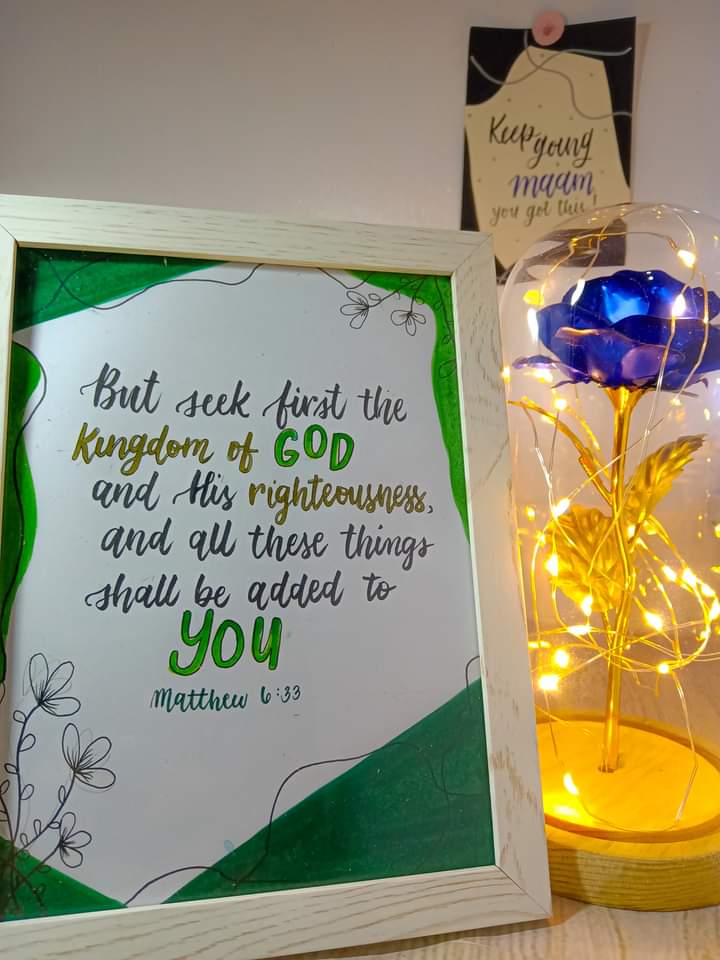 Keep going
maam
you got this!
But seek first the
Kingdom of GOD
and His righteousness,
and all these things
shall be added to
YOU
Matthew 6:33